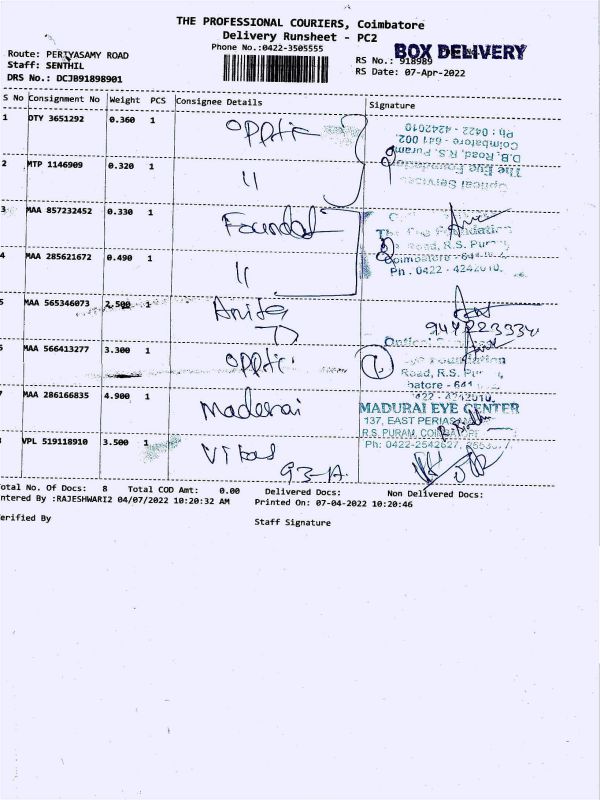 THE PROFESSIONAL COURIERS, Coimbatore
Delivery Runsheet - PC2
Phone No.:0422-3505555
BOX DELIVERY
Route: PERIYASAMY ROAD
Staff: SENTHIL
DRS No.: DCJB91898901
RS No.: 918989
RS Date: 07-Apr-2022
S No Consignment No Weight PCS Consignee Details Signature
1 DTY 3651292 0.360 1 Opptic
Ph : 0422 - 4242010
Coimbatore - 641 002.
D.B. Road, R.S. Puram,
The Eye Foundation
Optical Services
2 MTP 1146909 0.320 1 "
3 MAA 857232452 0.330 1 Foundat
The Eye Foundation
Road, R.S. Pur
4 MAA 285621672 0.490 1 "
Coimbatore - 641
Ph . 0422 - 4242010.
5 MAA 565346073 2.500 1 Anita
6 MAA 566413277 3.300 1 Opptic
Optical
Eye Foundation
Road, R.S. Pu
batore - 641
422 - 4242010.
7 MAA 286166835 4.900 1 Maderai
MADURAI EYE CENTER
137, EAST PERIASAMY
R.S. PURAM, COIMBATORE
Ph: 0422-2542627,
8 VPL 519118910 3.500 1 Vikas
93-1A
otal No. Of Docs: 8 Total COD Amt: 0.00 Delivered Docs: Non Delivered Docs:
ntered By :RAJESHWARI2 04/07/2022 10:20:32 AM Printed On: 07-04-2022 10:20:46
erified By
Staff Signature